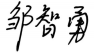 邹智勇